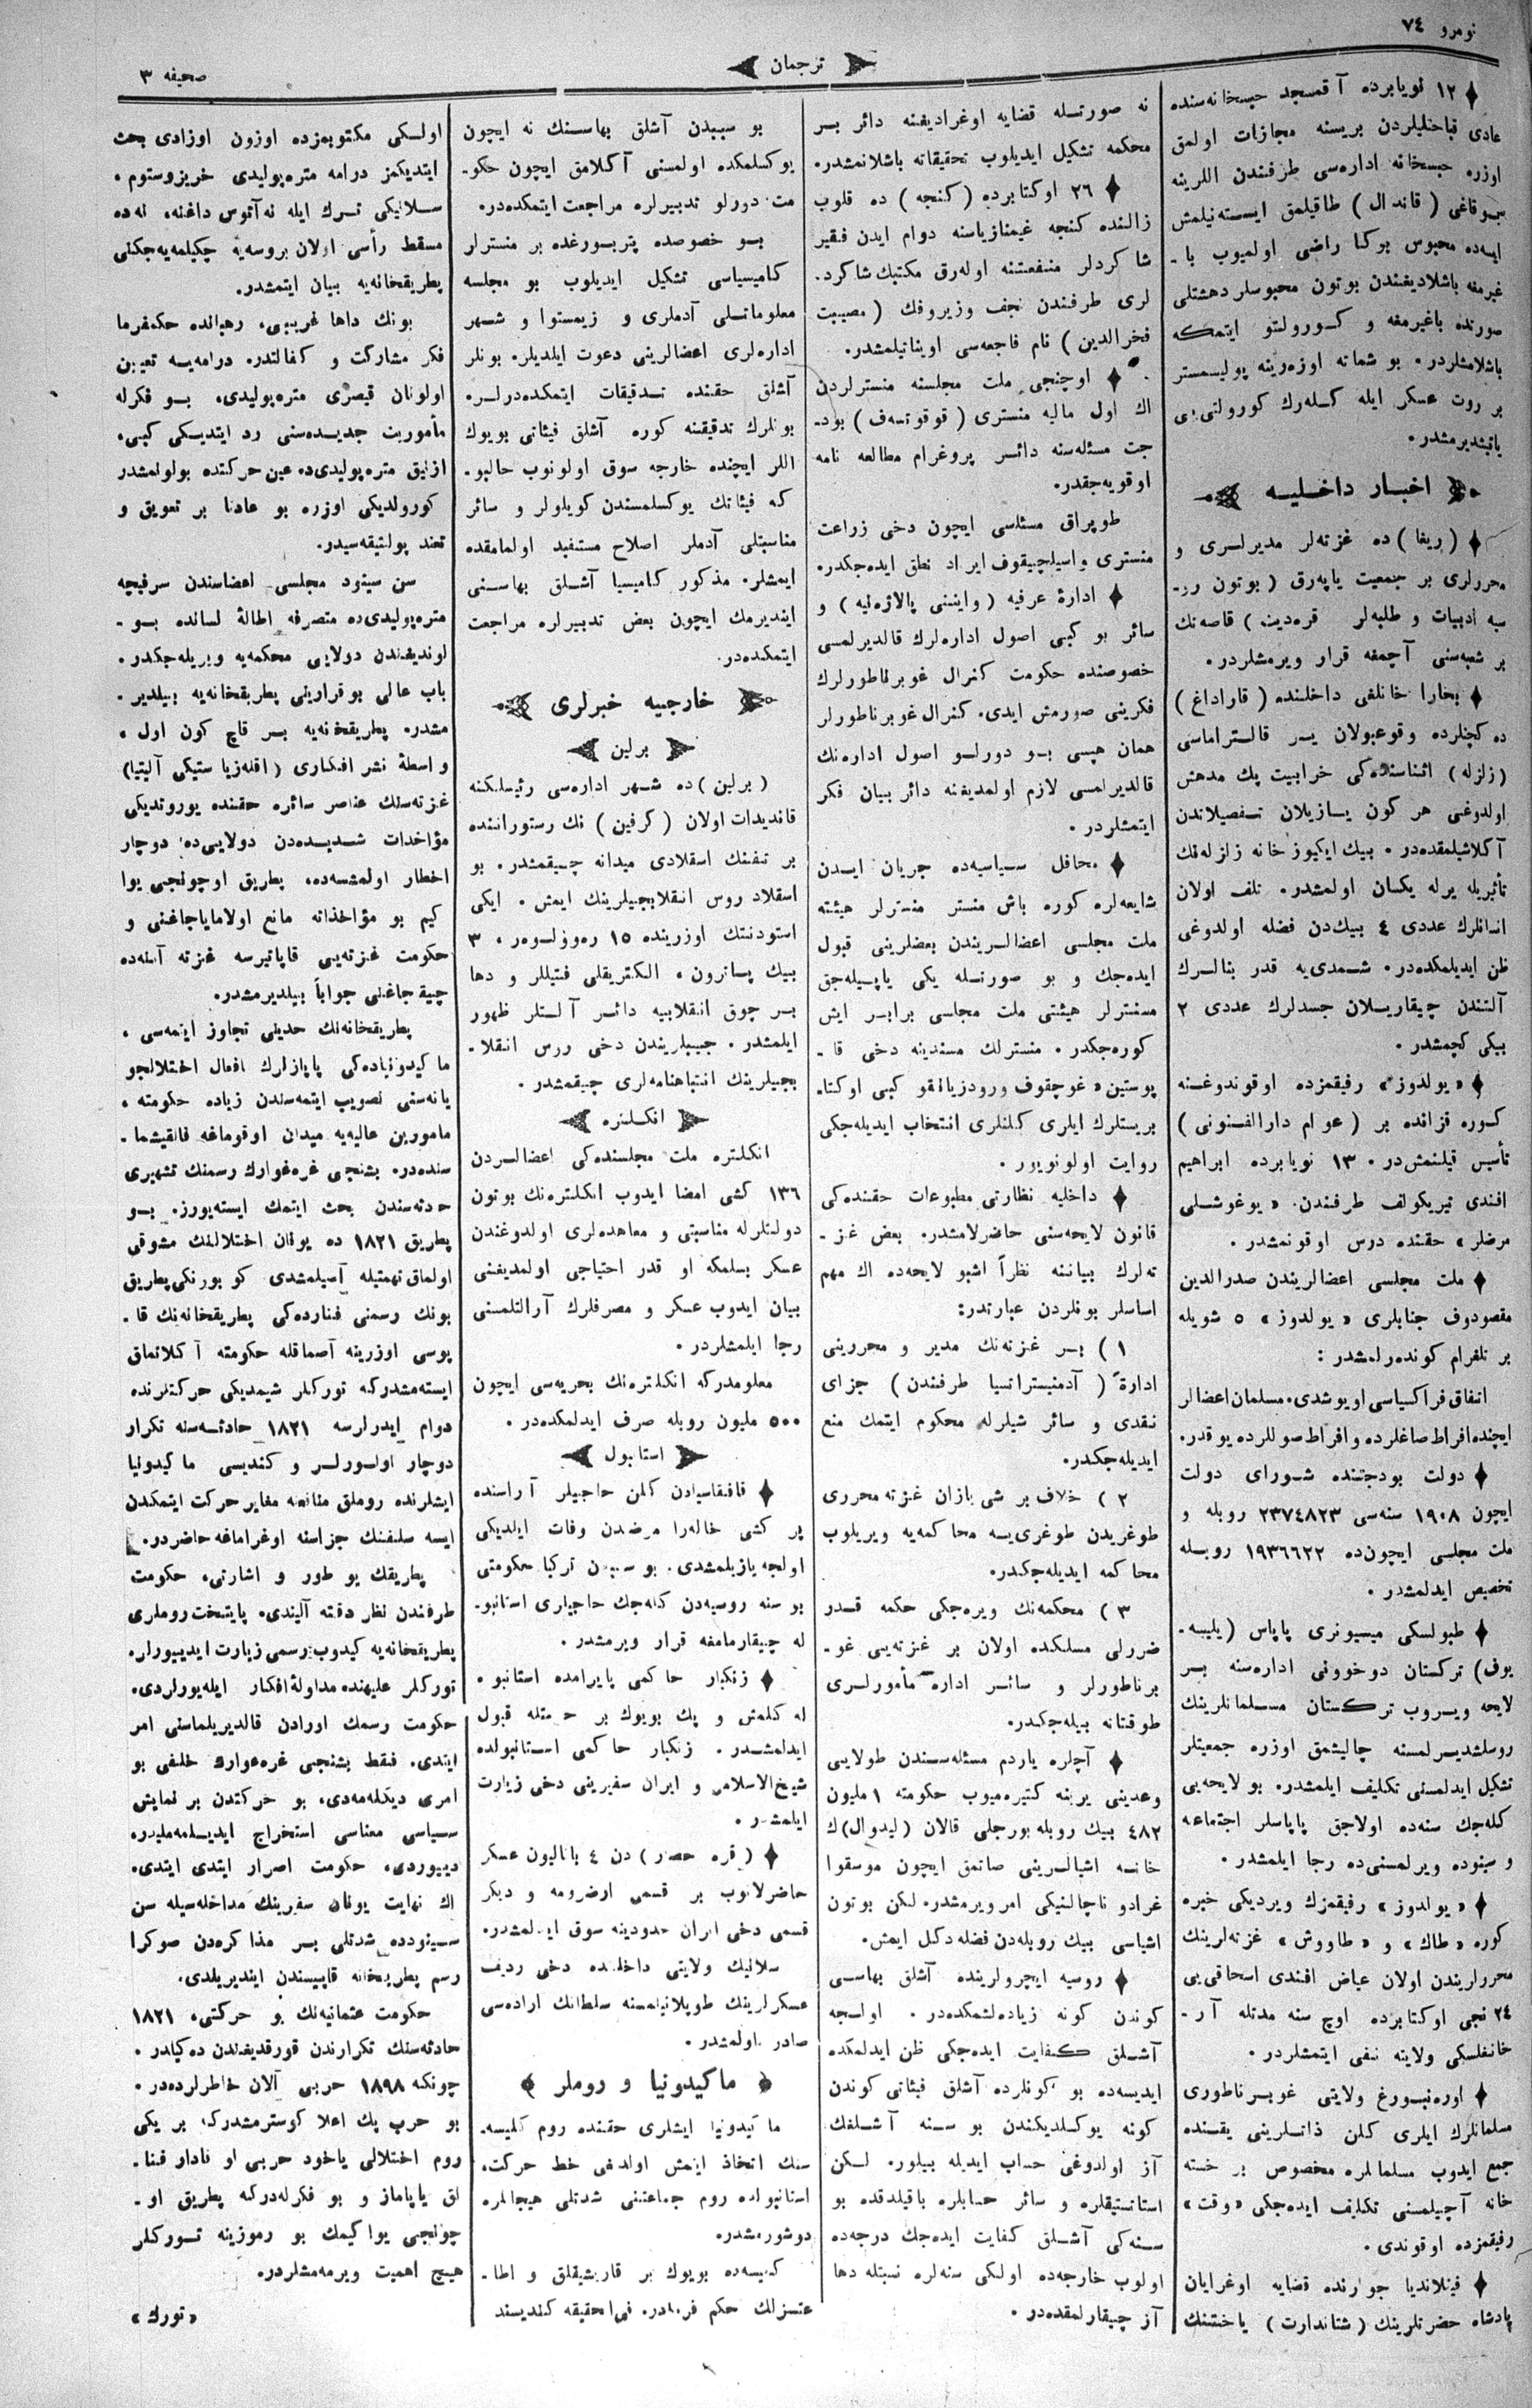 نومرو ٧٤
ترجمان
صحیفه ٣
١٢ نویابرده آقمسجد حبسخانه‌سنده
عادی قباحتلیلردن بریسنه مجازات اولمق
اوزره حبسخانه اداره‌سی طرفندن اللرینه
بوقاغی (قاندال) طاقیلمق ایسته‌نیلمش
ایسه‌ده محبوس بوكا راضی اولمیوب با-
غیرمغه باشلادیغندن بوتون محبوسلر دهشتلی
صورتده باغیرمغه و كورولتو ایتمكه
باشلامشلردر. بو شماته اوزه‌رینه پولیسمستر
بر روت عسكر ایله كله‌رك كورولتی‌یی
یاتیشدیرمشدر.
اخبار داخلیه
(ریغا) ده غزته‌لر مدیرلری و
محررلری بر جمعیت یاپه‌رق (بوتون رو-
سیه ادبیات و طلبه‌لر قره‌دیت) قاصه‌نك
بر شعبه‌سنی آچمغه قرار ویرمشلردر.
بخارا خانلغی داخلنده (قاراداغ)
ده كچنلرده وقوعبولان یر قالتراماسی
(زلزله) اثناسنده‌كی خرابیت پك مدهش
اولدوغی هر كون یازیلان تفصیلاتدن
آكلاشیلمقده‌در. بیك ایكیوز خانه زلزله‌نك
تأثیریله یرله یكسان اولمشدر. تلف اولان
انسانلرك عددی ٤ بیك‌دن فضله اولدوغی
ظن ایدیلمكده‌در. شمدی‌یه قدر بنالرك
آلتندن چیقاریلان جسدلرك عددی ٢
بیكی كچمشدر.
«یولدوز» رفیقمزده اوقوندوغنه
كوره قزانده بر (عوام دارالفنونی)
تأسیس قیلنمش‌در. ١٣ نویابرده ابراهیم
افندی تیریكولف طرفندن «یوغوشلی
مرضلر» حقنده درس اوقونمشدر.
ملت مجلسی اعضالریندن صدرالدین
مقصودوف جنابلری «یولدوز» ه شویله
بر تلغرام كوندرلمشدر:
اتفاق فراكسیاسی اویوشدی. مسلمان اعضالر
ایچنده افراط صاغلرده و افراط صوللرده یوقدر.
دولت بودجتنده شورای دولت
ایچون ١٩٠٨ سنه‌سی ٢٣٧٤٨٢٣ روبله و
ملت مجلسی ایچون‌ده ١٩٣٦٦٢٢ روبله
تخصیص ایدلمشدر.
طبولسكی میسیونری پاپاس (یلیسه-
یوف) تركستان دوخوونی اداره‌سنه بر
لایحه ویروب تركستان مسلمانلرینك
روسلشدیرلمسنه چالیشمق اوزره جمعیتلر
تشكیل ایدلمسنی تكلیف ایلمشدر. بو لایحه‌یی
كله‌جك سنه‌ده اولاجق پاپاسلر اجتماعنه
و سینوده ویرلمسنی‌ده رجا ایلمشدر.
«یولدوز» رفیقمزك ویردیكی خبره
كوره «طاك» و «طاووش» غزته‌لرینك
محررلریندن اولان عیاض افندی اسحاقی‌یی
٢٤ نجی اوكتابرده اوچ سنه مدتله آر-
خانغلسكی ولایته نفی ایتمشلردر.
اوره‌نبورغ ولایتی غوبرناطوری
مسلمانلرك ایلری كلن ذاتلرینی یقننده
جمع ایدوب مسلمانلره مخصوص بر خسته
خانه آچیلمسنی تكلیف ایده‌جكی «وقت»
رفیقمزده اوقوندی.
فینلاندیا جوارنده قضایه اوغرایان
پادشاه حضرتلرینك (شتاندارت) یاختنك
نه صورتله قضایه اوغرادیغنه دائر بر
محكمه تشكیل ایدیلوب تحقیقاته باشلانمشدر.
٢٦ اوكتابرده (كنجه) ده قلوب
زالنده كنجه غیمنازیاسنه دوام ایدن فقیر
شاكردلر منفعتنه اوله‌رق مكتبك شاكرد-
لری طرفندن نجف وزیروفك (مصیبت
فخرالدین) نام فاجعه‌سی اوینانیلمشدر.
اوچنجی ملت مجلسنه منسترلردن
اك اول مالیه منستری (قوقوتسه‌ف) بود-
جت مسئله‌سنه دائر پروغرام مطالعه نامه
اوقویه‌جقدر.
طوپراق مسئله‌سی ایچون دخی زراعت
منستری واسیلچیقوف ایراد نطق ایده‌جكدر.
ادارۀ عرفیه (وایننی پالاژه‌نیه) و
سائر بو كبی اصول اداره‌لرك قالدیرلمسی
خصوصنده حكومت كنرال غوبرناطورلرك
فكرینی صورمش ایدی. كنرال غوبرناطورلر
همان هپسی بو دورلو اصول اداره‌نك
قالدیرلمسی لازم اولمدیغنه دائر بیان فكر
ایتمشلردر.
محافل سیاسیه‌ده جریان ایدن
شایعه‌لره كوره باش منستر منسترلر هیئتنه
ملت مجلسی اعضالریندن بعضلرینی قبول
ایده‌جك و بو صورتله یكی یاپیله‌جق
منسترلر هیئتی ملت مجلسی برابر ایش
كوره‌جكدر. منسترلك مسندینه دخی قا-
پوستین، غوچقوف و رودزیانقو كبی اوكتا-
بریستلرك ایلری كلنلری انتخاب ایدیله‌جكی
روایت اولونویور.
داخلیه نظارتی مطبوعات حقنده‌كی
قانون لایحه‌سنی حاضرلامشدر. بعض غز-
ته‌لرك بیاننه نظراً اشبو لایحه‌ده اك مهم
اساسلر بونلردن عبارتدر:
١) بر غزته‌نك مدیر و محررینی
ادارةً (آدمنیستراتسیا طرفندن) جزای
نقدی و سائر شیلرله محكوم ایتمك منع
ایدیله‌جكدر.
٢) خلاف بر شی یازان غزته محرری
طوغریدن طوغری‌یه محاكمه‌یه ویریلوب
محاكمه ایدیله‌جكدر.
٣) محكمه‌نك ویره‌جكی حكمه قدر
ضررلی مسلكده اولان بر غزته‌یی غو-
برناطورلر و سائر اداره مأمورلری
طوقتاته بیله‌جكدر.
آچلره یاردم مسئله‌سندن طولایی
وعدینی یرینه كتیره‌میوب حكومته ١ ملیون
٤٨٢ بیك روبله بورجلی قالان (لیدوال)ك
خانه اشیالرینی صاتمق ایچون موسقوا
غرادوناچالنیكی امر ویرمشدر. لكن بوتون
اشیاسی بیك روبله‌دن فضله دكل ایمش.
روسیه ایچرولرینده آشلق بهاسی
كوندن كونه زیاده‌لشمكده‌در. اولجه
آشلق كفایت ایده‌جكی ظن ایدلمكده
ایدیسه‌ده بو كونلرده آشلق فیئاتی كوندن
كونه یوكسلدیكندن بو سنه آشلغك
آز اولدوغی حساب ایدیله بیلور. لكن
استاتستیقلره و سائر حسابلره باقیلدقده بو
سنه‌كی آشلق كفایت ایده‌جك درجه‌ده
اولوب خارجه‌ده اولكی سنه‌لره نسبتله دها
آز چیقارلمقده‌در.
بو سببدن آشلق بهاسنك نه ایچون
یوكسلمكده اولمسنی آكلامق ایچون حكو-
مت دورلو تدبیرلره مراجعت ایتمكده‌در.
بو خصوصده پتربورغده بر منسترلر
كامیسیاسی تشكیل ایدیلوب بو مجلسه
معلوماتلی آدملری و زیمستوا و شهر
اداره‌لری اعضالرینی دعوت ایلدیلر. بونلر
آشلق حقنده تدقیقات ایتمكده‌درلر.
بونلرك تدقیقنه كوره آشلق فیئاتی بویوك
اللر ایچنده خارجه سوق اولونوب حالبو-
كه فیئاتك یوكسلمسندن كویلولر و سائر
مناسبتلی آدملر اصلا مستفید اولمامقده
ایمشلر. مذكور كامیسیا آشلق بهاسنی
ایندیرمك ایچون بعض تدبیرلره مراجعت
ایتمكده‌در.
خارجیه خبرلری
برلین
(برلین) ده شهر اداره‌سی رئیسلكنه
قاندیدات اولان (كرفین) نك رستوراننده
بر تفنك اسقلادی میدانه چیقمشدر. بو
اسقلاد روس انقلابجیلرینك ایمش. ایكی
استودنتك اوزرینده ١٥ ره‌وولوه‌ر، ٣
بیك پاترون، الكتریقلی فتیللر و دها
بر چوق انقلابیه دائر آلتلر ظهور
ایلمشدر. جیبلریندن دخی روس انقلا-
بجیلرینك انتباهنامه‌لری چیقمشدر.
انكلتره
انكلتره ملت مجلسنده‌كی اعضالردن
١٣٦ كشی امضا ایدوب انكلتره‌نك بوتون
دولتلرله مناسبتی و معاهده‌لری اولدوغندن
عسكر بسلمكه او قدر احتیاجی اولمدیغنی
بیان ایدوب عسكر و مصرفلرك آزالتلمسنی
رجا ایلمشلردر.
معلومدركه انكلتره‌نك بحریه‌سی ایچون
٥٠٠ ملیون روبله صرف ایدلمكده‌در.
استانبول
قافقاسیادن كلن حاجیلر آراسنده
بر كشی خاله‌را مرضدن وفات ایلدیكی
اولجه یازیلمشدی. بو سببدن تركیا حكومتی
بو سنه روسیه‌دن كله‌جك حاجیلری استانبو-
له چیقارمامغه قرار ویرمشدر.
زنكبار حاكمی پایرامده استانبو-
له كلمش و پك بویوك بر حرمتله قبول
ایدلمشدر. زنكبار حاكمی استانبولده
شیخ‌الاسلامی و ایران سفیرینی دخی زیارت
ایلمشدر.
(قره حصار) دن ٤ باتالیون عسكر
حاضرلانوب بر قسمی ارضرومه و دیكر
قسمی دخی ایران حدودینه سوق ایدلمشدر.
سلانیك ولایتی داخلنده دخی ردیف
عسكرلرینك طوپلانیلمسنه سلطانك اراده‌سی
صادر اولمشدر.
ماكیدونیا و روملر
ماكیدونیا ایشلری حقنده روم كلیسه-
سنك اتخاذ ایتمش اولدغی خط حركت،
استانبولده روم جماعتنی شدتلی هیجانلره
دوشورمشدر.
كلیسه‌ده بویوك بر قاریشیقلق و اطا-
عتسزلك حكم فرمادر. فی‌الحقیقه كندیسند
اولكی مكتوبمزده اوزون اوزادی بحث
ایتدیكمز درامه متره‌پولیدی خریزوستوم،
سلانیكی ترك ایله نه آنوس داغنه، نه‌ده
مسقط رأسی اولان بروسه‌یه چكیلمه‌یه‌جكنی
پطریقخانه‌یه بیان ایتمشدر.
بونك داها غریبی، رهبانده حكمفرما
فكر مشاركت و كفالتدر. درامه‌یه تعیین
اولونان قیصری متره‌پولیدی، بو فكرله
مأموریت جدیده‌سنی رد ایتدیكی كبی،
ازنیق متره‌پولیدی‌ده عین حركتده بولونمشدر
كورولدیكی اوزره بو عادتا بر تعویق و
تعند پولتیقه‌سیدر.
سن سینود مجلسی اعضاسندن سرفیچه
متره‌پولیدی‌ده متصرفه اطالۀ لسانده بو-
لوندیغندن دولایی محكمه‌یه ویریله‌جكدر.
باب عالی بو قرارینی پطریقخانه‌یه بیلدیر-
مشدر. پطریقخانه‌یه بر قاچ كون اول،
واسطۀ نشر افكاری (اقله‌زیاستیكی آلیتیا)
غزته‌سنك عناصر سائره حقنده یوروتدیكی
مؤاخذات شدیده‌دن دولایی‌ده دوچار
اخطار اولمشسه‌ده، پطریق اوچونجی یوا
كیم بو مؤاخذاته مانع اولامایاجاغنی و
حكومت غزته‌یی قاپاتیرسه غزته آتنه‌ده
چیقه‌جاغنی جواباً بیلدیرمشدر.
پطریقخانه‌نك حدینی تجاوز ایتمه‌سی،
ماكیدونیاده‌كی پاپازلرك افعال اختلالجو
یانه‌سنی تصویب ایتمه‌سندن زیاده حكومته،
مامورین عالیه‌یه میدان اوقومغه قالقیشما-
سنده‌در. بشنجی غره‌غوارك رسمنك تشهیری
حادثه‌سندن بحث ایتمك ایسته‌یورز. بو
پطریق ١٨٢١ ده یونان اختلالنك مشوقی
اولماق تهمتیله آصیلمشدی كو بورنكی پطریق
بونك رسمنی فنارده‌كی پطریقخانه‌نك قا-
پوسی اوزرینه آصماقله حكومته آكلاتماق
ایسته‌مشدركه توركلر شیمدیكی حركتلرنده
دوام ایدرلرسه ١٨٢١ حادثه‌سنه تكرار
دوچار اولورلر و كندیسی ماكیدونیا
ایشلرنده روملق منافعنه مغایر حركت ایتمكدن
ایسه سلفنك جزاسنه اوغراماغه حاضردر.
پطریقك بو طور و اشارتی، حكومت
طرفندن نظر دقته آلیندی. پایتخت روملری
پطریقخانه‌یه كیدوب رسمی زیارت ایدییورلر.
توركلر علیهنده مداولۀ افكار ایله‌یورلردی.
حكومت رسمك اورادن قالدیریلماسنی امر
ایتدی. فقط بشنجی غره‌غوارك خلفی بو
امری دیكله‌مه‌دی. بو حركتدن بر نمایش
سیاسی معناسی استخراج ایدیلمه‌ملیدر،
دییوردی. حكومت اصرار ایتدی ایتدی.
اك نهایت یونان سفیرینك مداخله‌سیله سن
سینودده شدتلی بر مذاكره‌دن صوكرا
رسم پطریقخانه قاپیسندن ایندیریلدی.
حكومت عثمانیه‌نك بو حركتی، ١٨٢١
حادثه‌سنك تكرارندن قورقدیغندن ده‌كیلدر.
چونكه ١٨٩٨ حربی آلان خاطرلرده‌در.
بو حرب پك اعلا كوسترمشدركه بر یكی
روم اختلالی یاخود حربی او قادار فنا-
لق یاپاماز و بو فكرله‌دركه پطریق او-
چونجی یواكیمك بو رموزینه توركلر
هیچ اهمیت ویرمه‌مشلردر.
«تورك»